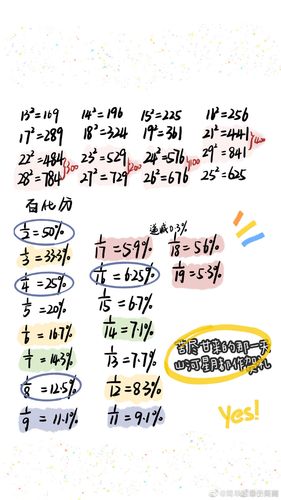 13²=169 14²=196 15²=225 16²=256
17²=289 18²=324 19²=361 21²=441
22²=484 23²=529 24²=576 29²=841
28²=784 27²=729 26²=676 25²=625
300 200 100 400
百化分
递减0.3%
1/2=50%
1/3=33.3%
1/4=25%
1/5=20%
1/6=16.7%
1/7=14.3%
1/8=12.5%
1/9=11.1%
1/17=5.9%
1/16=6.25%
1/15=6.7%
1/14=7.1%
1/13=7.7%
1/12=8.3%
1/11=9.1%
1/18=5.6%
1/19=5.3%
苦尽甘来的那一天
山河星月都作贺礼
yes!